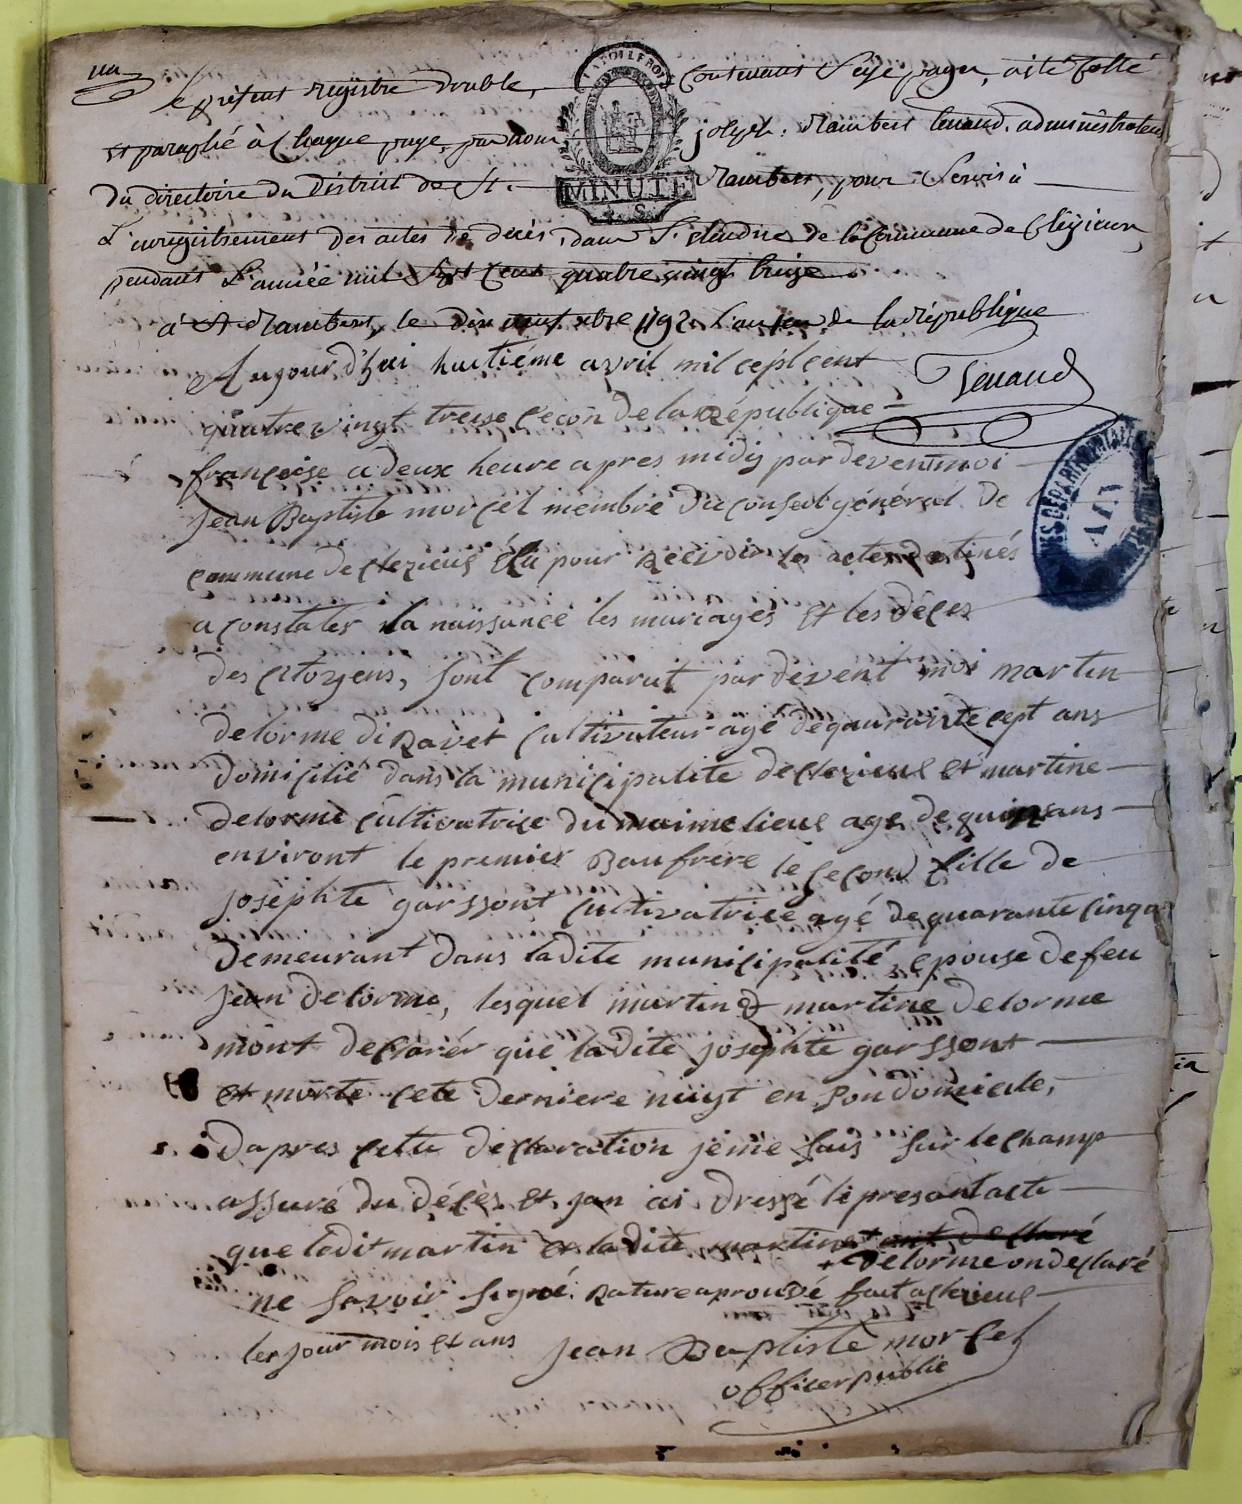 un
Le présent registre double, contenant Seise pages, a été Cotté
et paraphé à Chaque page, par nous joseph: Rambert tenand. administrateur
du directoire du District de St. Rambert, pour Servir à
L'enregistrement des actes de décès, dans de la Commune de Clezieux,
pendant L'année mil Sept Cent quatre vingt treize.
à St. Rambert, le dix neuf xbre 1792 L'an 1er de la République
Tenand
LA LOI LE ROI
MINUTE
4. S.
Aujourd'hui huitiéme avril mil cept cent
quatre vingt treise l'econ de la République
françoise a deux heure apres midy par devent moi
Jean Baptiste morcel membre du conseil général de
commune de clezieus Élu pour Recevoir les actes destinés
a constater la naissance les mariages et les décez
des citozens, sont comparut par devent moi martin
delorme di Ravet Cultivateur agé de quarante cept ans
domicilié dans la municipalite de clezieus et martine
delorme cultivatrise du maime lieus age de quinz ans
environt le premier Baufrere le ceçond fille de
josephte garssont cultivatrice agé de quarante cinq a
demeurant dans ladite municipalité epouse de feu
jean delorme, lesquel martin & martine delorme
mont declarér que ladite josephte garssont
et morte cete derniere nuyt en son domicile,
dapres cette declaration je me suis sur le champ
assuré du décès et jan ai dressé le presant acte
que ledit martin et ladite martine + ont declaré
+ delorme on declaré
ne savoir signé. Rature aprouvé fait a clezieus
les jour mois et ans Jean Baptiste morcel
officer publie
ARCHIVES DEPARTEMENTALES